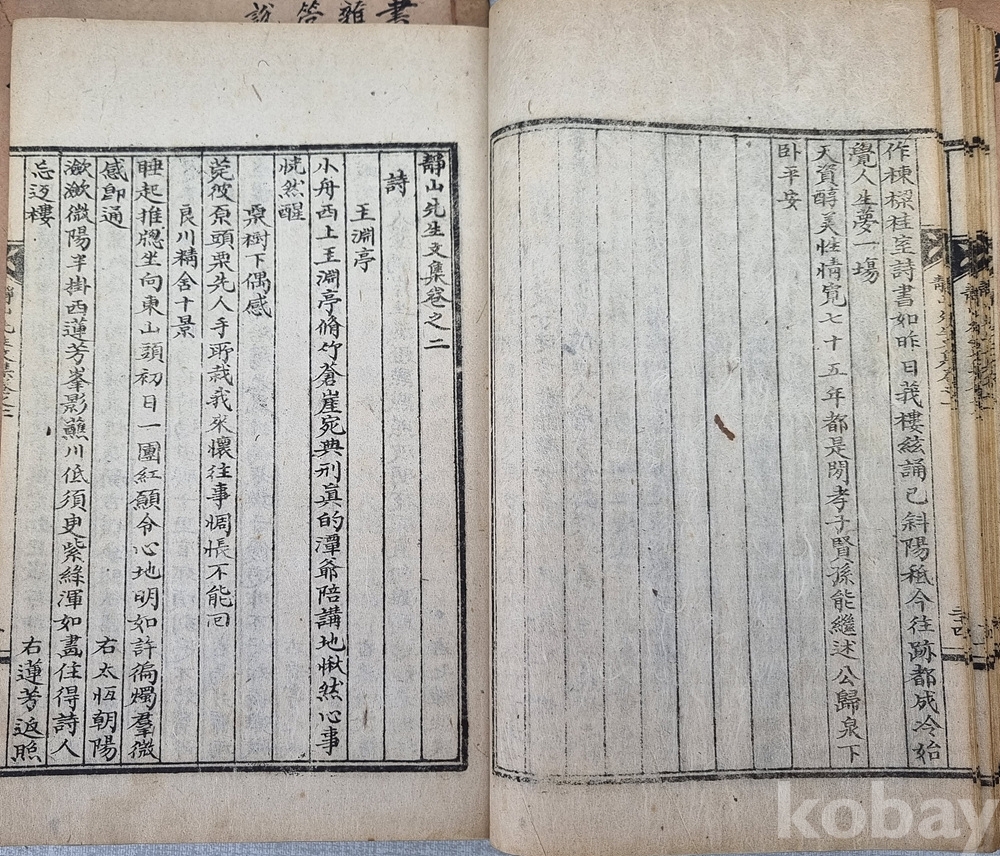 作棟樑桂室詩書如昨日莪樓絃誦已斜陽秪今往跡都成冷始
覺人生夢一場
天資醇美性情寬七十五年都是閒孝子賢孫能繼述公歸泉下
卧平安
靜山先生文集卷之二
詩
王淵亭
小舟西上王淵亭脩竹蒼崖宛典刑眞的潭爺陪講地愀然心事
恍然醒
栗樹下偶感
菀彼原頭栗先人手所栽我來懷往事惆悵不能回
良川精舍十景
睡起推牕坐向東山頭初日一團紅願令心地明如許徧燭羣微
感卽通
右太恒朝陽
瀲瀲微陽半掛西蓮芳峯影蘸川低須臾紫綠渾如畵住得詩人
忘返樓
右蓮芳返照
書雜答說
kobay